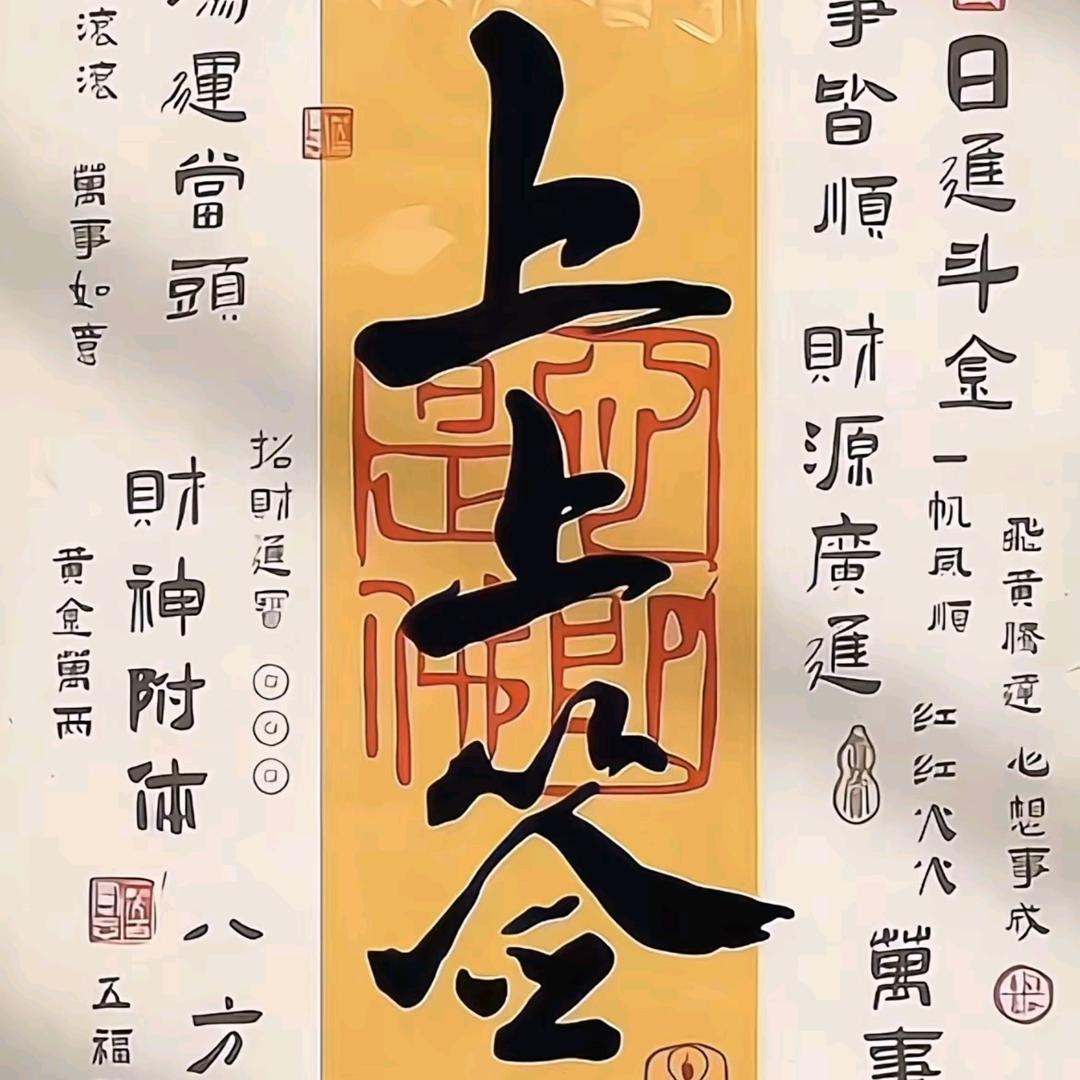 日進斗金
一帆風順
飛黃騰達
心想事成
紅紅火火
事皆順
財源廣進
萬事
上上签
運當頭
招財進寶
財神附体
八方
滾滾
萬事如意
黄金萬两
五福